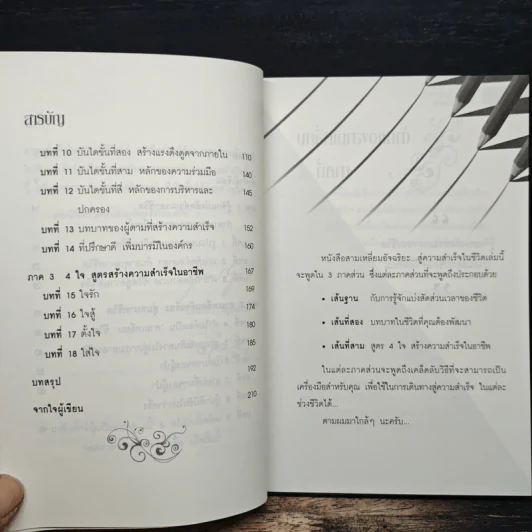 สารบัญ
บทที่ 10 บันไดขั้นที่สอง สร้างแรงดึงดูดจากภายใน 110
บทที่ 11 บันไดขั้นที่สาม หลักของความร่วมมือ 140
บทที่ 12 บันไดขั้นที่สี่ หลักของการบริหารและ 145
ปกครอง
บทที่ 13 บทบาทของผู้ตามที่สร้างความสำเร็จ 152
บทที่ 14 ที่ปรึกษาดี เพิ่มบารมีในองค์กร 160
ภาค 3 4 ใจ สูตรสร้างความสำเร็จในอาชีพ 167
บทที่ 15 ใจรัก 169
บทที่ 16 ใจสู้ 174
บทที่ 17 ตั้งใจ 180
บทที่ 18 ใส่ใจ 185
บทสรุป 192
จากใจผู้เขียน 210
หนังสือสามเหลี่ยมอัจฉริยะ...สู่ความสำเร็จในชีวิตเล่มนี้
จะพูดใน 3 ภาคส่วน ซึ่งแต่ละภาคส่วนที่จะพูดถึงประกอบด้วย
• เส้นฐาน กับการรู้จักแบ่งสัดส่วนเวลาของชีวิต
• เส้นที่สอง บทบาทในชีวิตที่คุณต้องพัฒนา
• เส้นที่สาม สูตร 4 ใจ สร้างความสำเร็จในอาชีพ
ในแต่ละภาคส่วนจะพูดถึงเคล็ดลับวิธีที่จะสามารถเป็น
เครื่องมือสำหรับคุณ เพื่อใช้ในการเดินทางสู่ความสำเร็จ ในแต่ละ
ช่วงชีวิตได้...
ตามผมมาใกล้ๆ นะครับ...